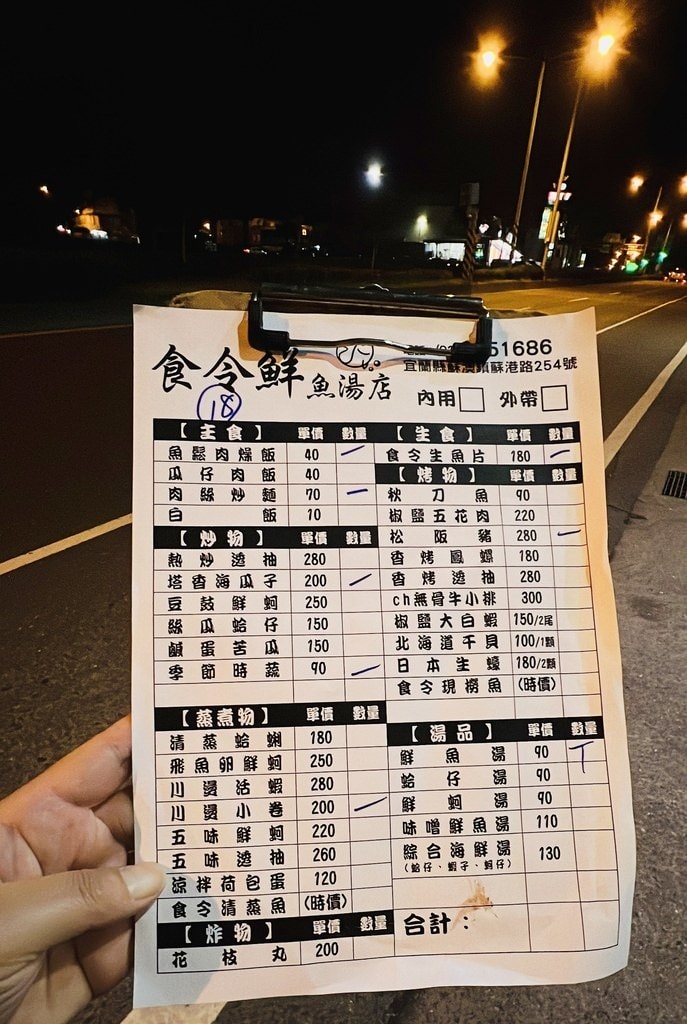 食令鮮魚湯店
51686
宜蘭縣蘇澳鎮蘇港路254號
內用 外帶
18
【主食】 單價 數量
魚鬆肉燥飯 40
瓜仔肉飯 40
肉絲炒麵 70
白飯 10
【炒物】 單價 數量
熱炒透抽 280
塔香海瓜子 200
豆鼓鮮蚵 250
絲瓜蛤仔 150
鹹蛋苦瓜 150
季節時蔬 90
【蒸煮物】 單價 數量
清蒸蛤蜊 180
飛魚卵鮮蚵 250
川燙活蝦 280
川燙小卷 200
五味鮮蚵 220
五味透抽 260
涼拌荷包蛋 120
食令清蒸魚 (時價)
【炸物】 單價 數量
花枝丸 200
【生食】 單價 數量
食令生魚片 180
【烤物】 單價 數量
秋刀魚 90
椒鹽五花肉 220
松阪豬 280
香烤鳳螺 180
香烤透抽 280
ch無骨牛小排 300
椒鹽大白蝦 150/2尾
北海道干貝 100/1顆
日本生蠔 180/2顆
食令現撈魚 (時價)
【湯品】 單價 數量
鮮魚湯 90
蛤仔湯 90
鮮蚵湯 90
味噌鮮魚湯 110
綜合海鮮湯 130
(蛤仔、蝦子、蚵仔)
合計：